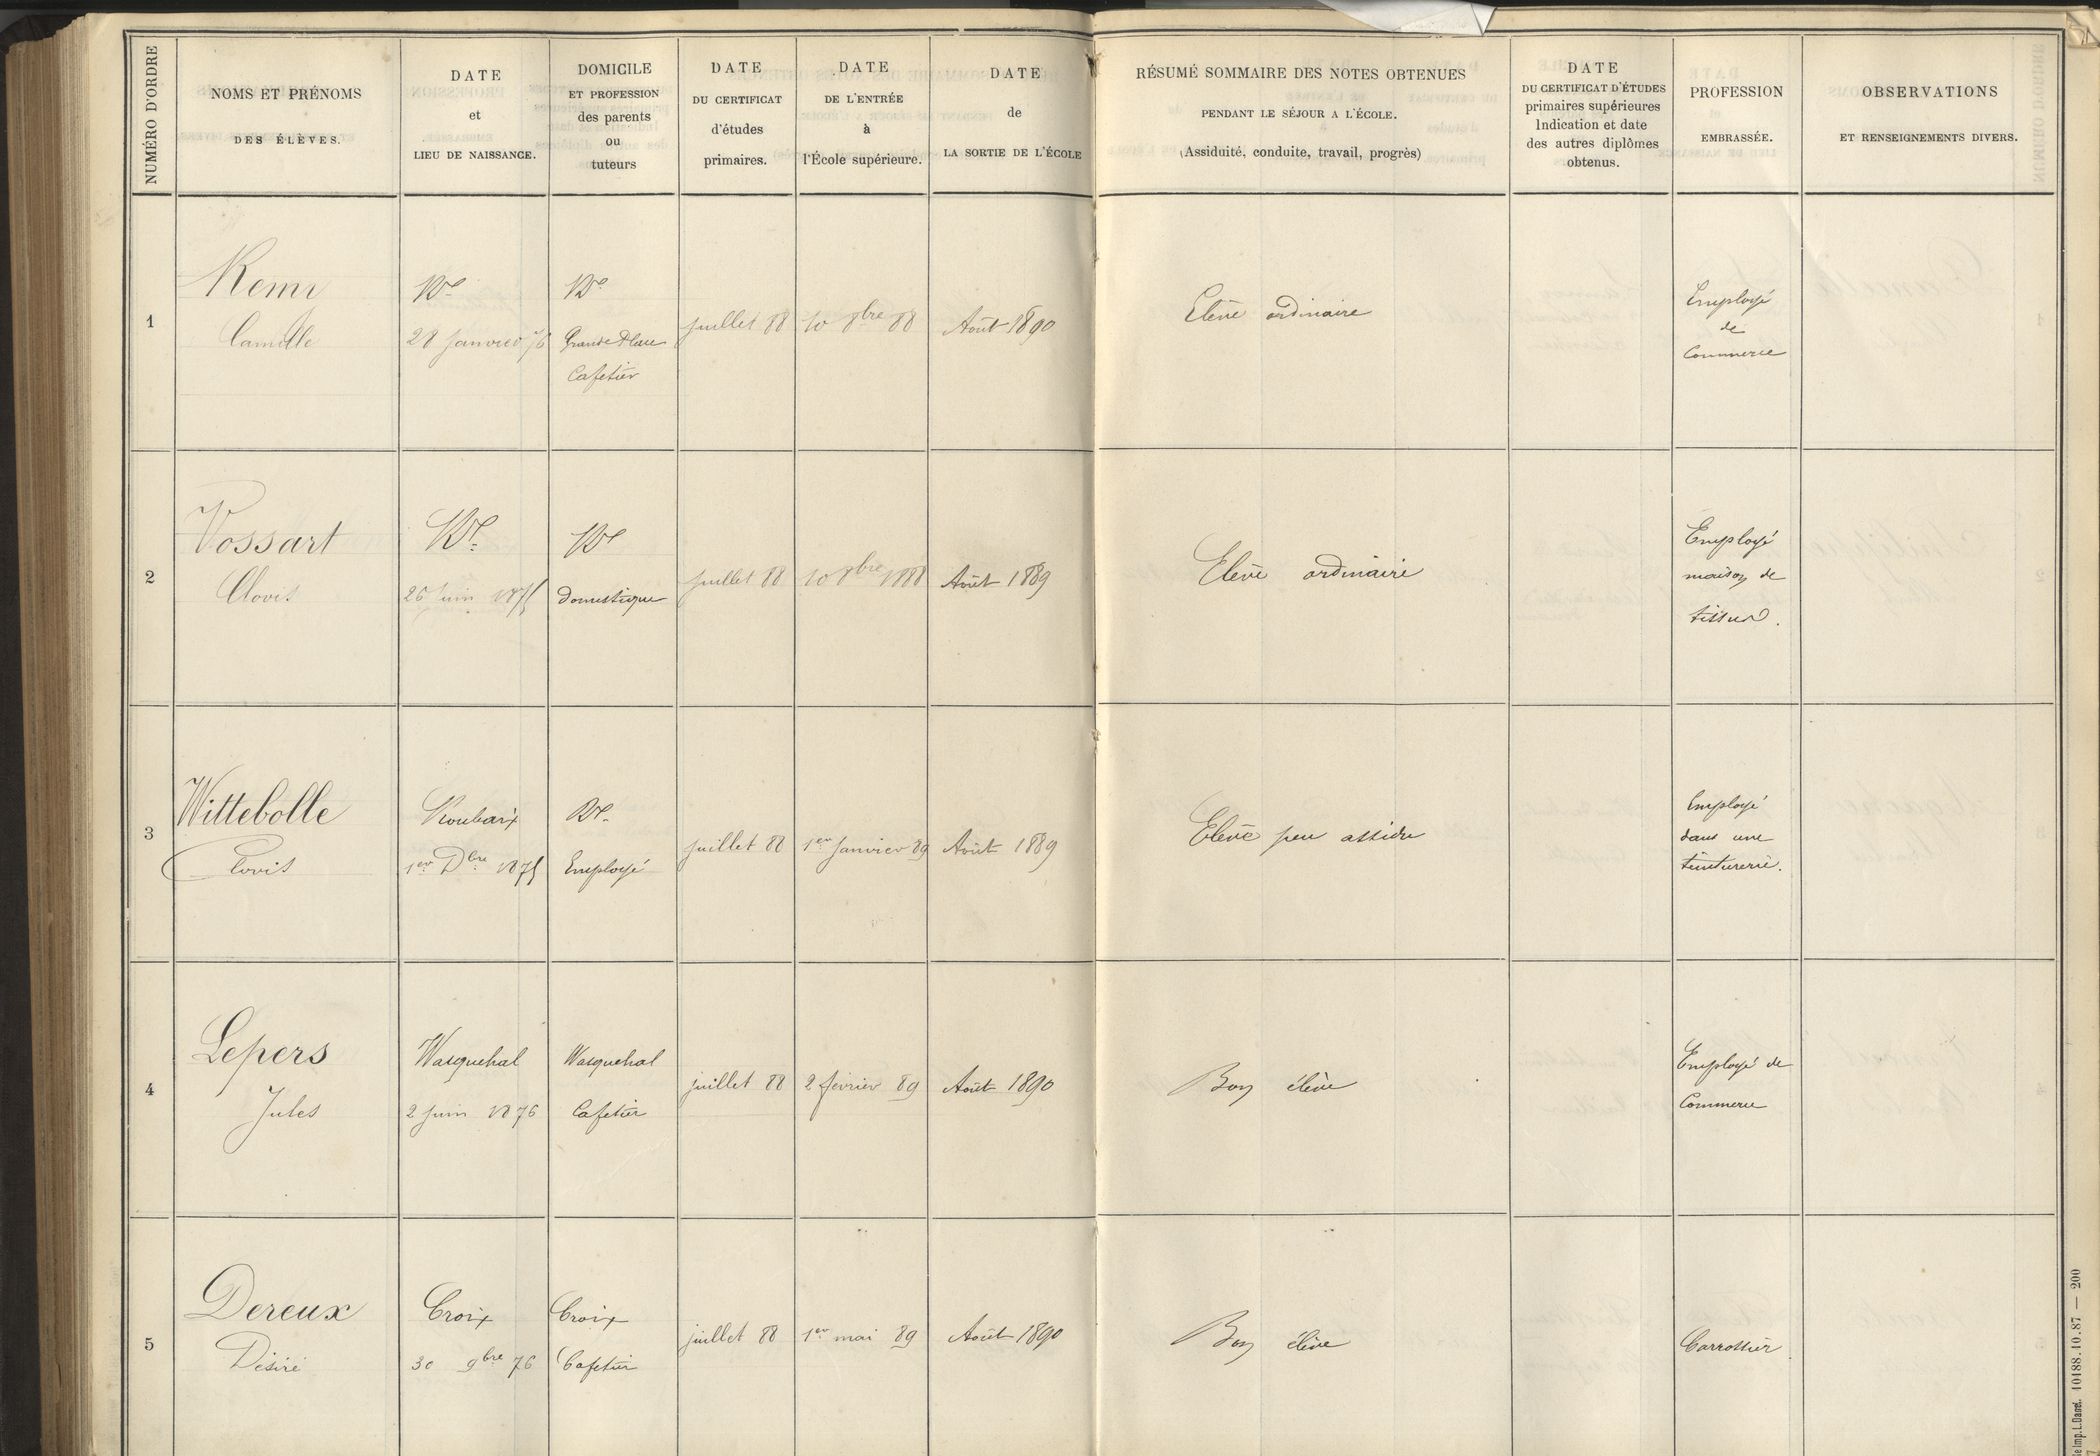 NUMÉRO D'ORDRE
NOMS ET PRÉNOMS
DES ÉLÈVES.
DATE
et
LIEU DE NAISSANCE.
DOMICILE
ET PROFESSION
des parents
ou
tuteurs
DATE
DU CERTIFICAT
d'études
primaires.
DATE
DE L'ENTRÉE
à
l'École supérieure.
DATE
de
LA SORTIE DE L'ÉCOLE
RÉSUMÉ SOMMAIRE DES NOTES OBTENUES
PENDANT LE SÉJOUR A L'ÉCOLE.
(Assiduité, conduite, travail, progrès)
DATE
DU CERTIFICAT D'ÉTUDES
primaires supérieures
Indication et date
des autres diplômes
obtenus.
PROFESSION
EMBRASSÉE.
OBSERVATIONS
ET RENSEIGNEMENTS DIVERS.
1
Remy
Camille
28 Janvier 76
Grande Place
Cafetier
juillet 88
10 8bre 88
Août 1890
Elève ordinaire
Employé
de
Commerce
2
Vossart
Clovis
26 Juin 1875
domestique
juillet 88
10 8bre 1888
Août 1889
Elève ordinaire
Employé
maison de
tissus.
3
Wittebolle
Clovis
Roubaix
1er Dbre 1875
Employé
juillet 88
1er Janvier 89
Août 1889
Elève peu assidu
Employé
dans une
teinturerie.
4
Lepers
Jules
Wasquehal
2 Juin 1876
Wasquehal
Cafetier
juillet 88
2 février 89
Août 1890
Bon élève
Employé de
Commerce
5
Dereux
Désiré
Croix
30 9bre 76
Croix
Cafetier
juillet 88
1er mai 89
Août 1890
Bon élève
Carrossier
Imp. L. Danel. 10188.10.87 — 200